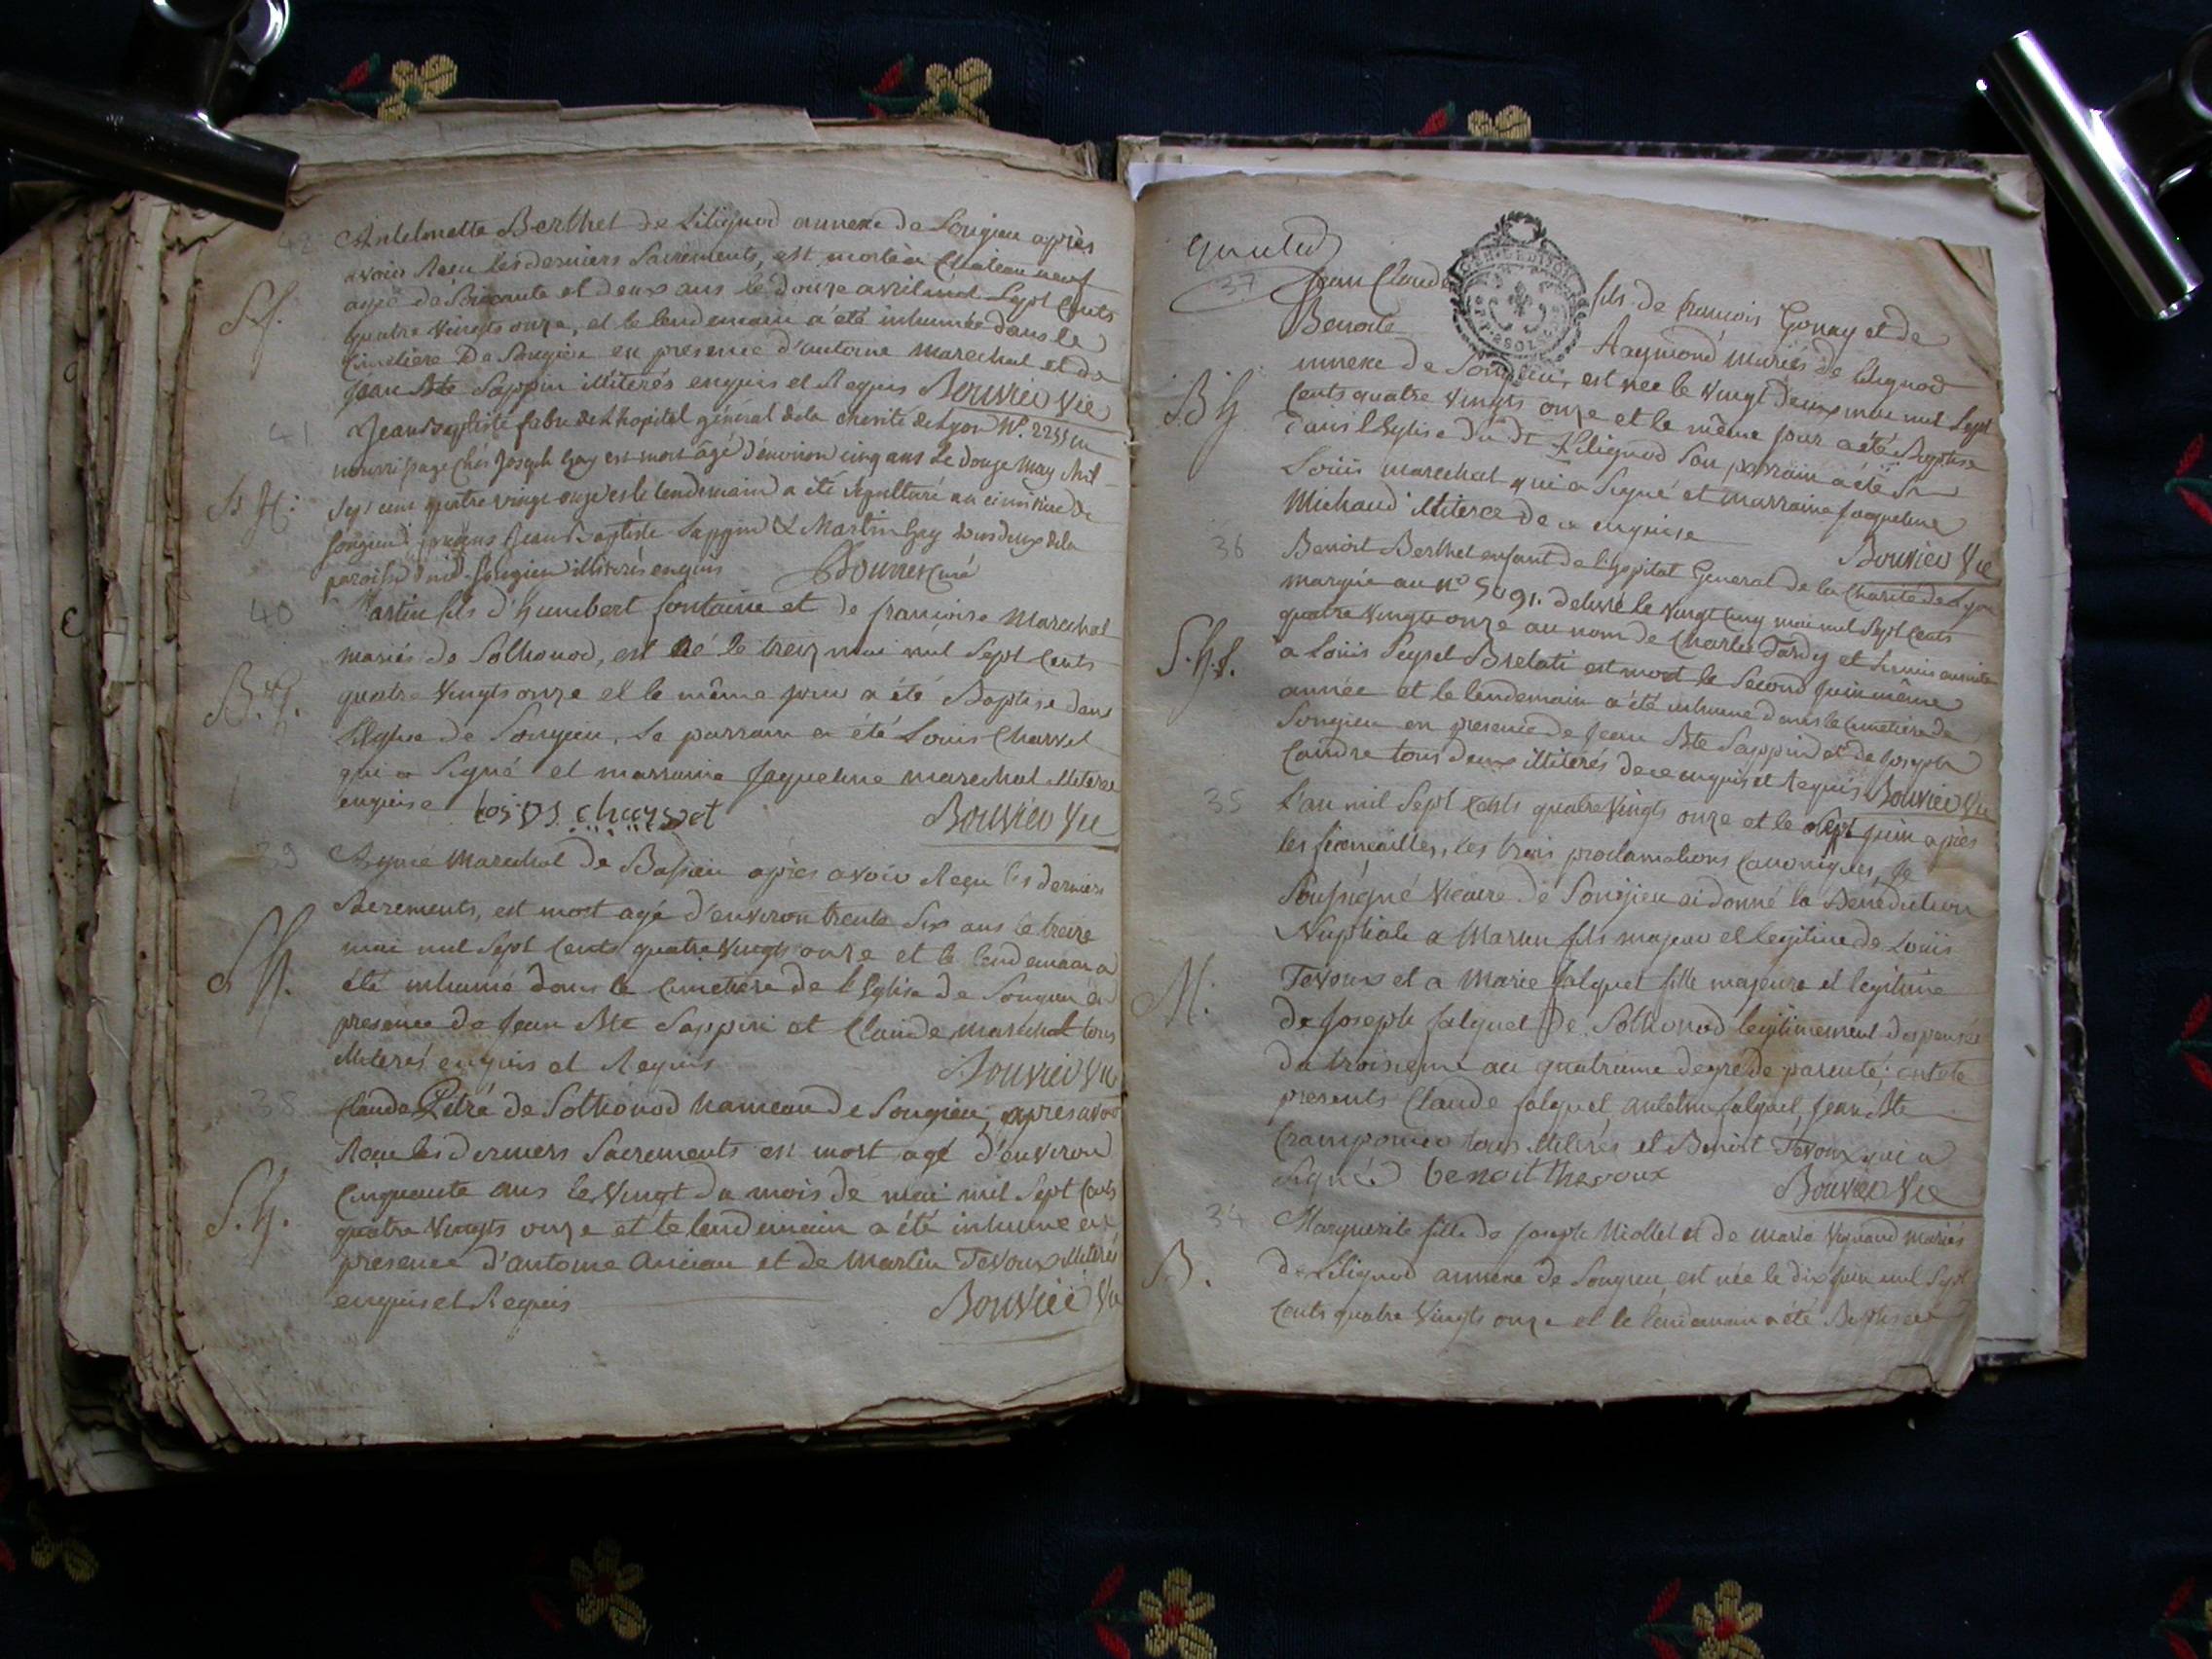 42 Antelmette Berthet de Lilignod annexe de Songieu après
avoir Reçu les derniers Sacrements, est morte à Chateauneuf
agée de Soixante et deux ans le douze avril mil Sept Cents
S.f. quatre Vingts onze, et le lendemain a été inhumée dans le
Cimetière de Songieu en presence d'antoine marechal et de
Jean Bte Sappin illiterés enquis et Requis Bouvier Vic
41 Jean baptiste fabre de l'hopital général de la charité de Lyon N°. 2255 en
nourrissage chés Joseph Gay est mort âgé d'environ cinq ans Le douze May Mil
Sept cent quatre vingt onze et le lendemain a été sépulturé au cimitiere de
Songieu présens Jean Baptiste Sappin & Martin Gay tous deux de la
paroisse de Songieu illiterés enquis curé
40 Martin fils d'Humbert fontaine et de francoise Marechal
mariés de Sothonod, est né le treiz mai mil Sept Cents
B.G. quatre Vingts onze et le même jour a été Baptisé dans
l'Eglise de Songieu, Le parrain a été Louis Charvet
qui a Signé et marraine Jaqueline marechal illiteree
enquise Lois charvet Bouvier Vic
39 Ayme Marechal de Bassieu après avoir Reçu les derniers
Sacrements, est mort agé d'environ trente Six ans le treize
mai mil Sept Cents quatre Vingts onze et le lendemain a
S.H. été inhumé dans le Cimetiere de l'Eglise de Songieu en
presence de Jean Bte Sappin et Claude Maréchal tous
illiterés enquis et Requis Bouvier Vic
38 Claude Pétré de Sothonod hameau de Songieu, après avoir
Reçu les derniers Sacrements est mort agé d'environ
Cinquante ans le Vingt du mois de mai mil Sept Cents
S.H. quatre Vingts onze et le lendemain a été inhumé en
presence d'antoine Ancian et de Martin Tevoux illiterés
enquis et Requis Bouvier Vic
37 Jean Claude fils de francois Gonay et de
Benoite Raymond mariés de Lilignod
annexe de Songieu, est née le Vingt deux mai mil Sept
B.G. Cents quatre Vingts onze et le même jour a été Baptisé
dans l'Eglise du dt Lilignod Son parrain a été
Loüis marechal qui a Signé et marraine Jaqueline
Michaud illiteree de ce enquise
Bouvier Vic
36 Benoit Berthet enfant de l'hopital General de la Charité de Lyon
marquée au n° 5491. delivré le Vingt Cinq mai mil Sept Cents
quatre Vingts onze au nom de Charles Tardy et
S.H.f. a Loüis Seyset Brelati est mort le Second Juin même
année et le lendemain a été inhumé dans le Cimetiere de
Songieu en presence de Jean Bte Sappin et de Joseph
Caindre tous deux illiterés de ce enquis et Requis Bouvier Vic
35 L'an mil Sept Cents quatre Vingts onze et le Sept Juin après
les fiancailles, les trois proclamations Canoniques, Je
Soussigné Vicaire de Songieu ai donné la Bénédiction
Nuptiale a Martin fils majeur et legitime de Loüis
M. Tevoux et a Marie falquet fille majeure et legitime
de Joseph falquet de Sothonod legitimement dispensés
du troisieme au quatrieme degré de parenté; ont été
presents Claude falquet, antelme falquet, Jean Bte
Cramponier tous illiterés et Benoit Tevoux qui a
Signé benoit thevoux Bouvier Vic
34 Marguerite fille de Joseph Niollet et de Marie Vignand mariés
B. de Lilignod annexe de Songieu, est née le dix Juin mil Sept
Cents quatre Vingts onze et le lendemain a été Baptisée